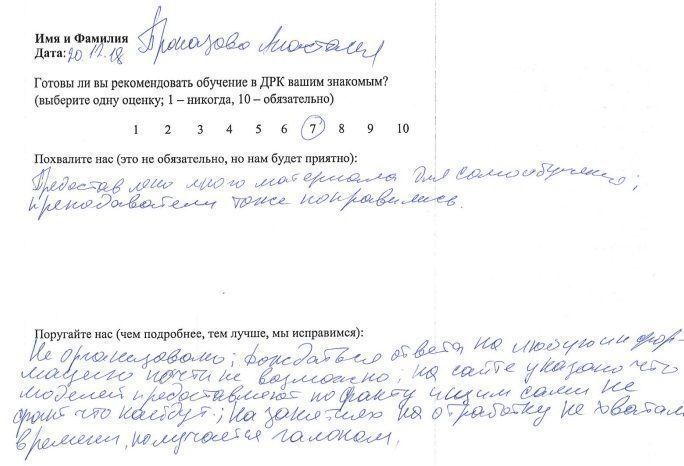 Имя и Фамилия Проказова Анастасия
Дата: 20.12.18
Готовы ли вы рекомендовать обучение в ДРК вашим знакомым?
(выберите одну оценку; 1 – никогда, 10 – обязательно)
1 2 3 4 5 6 7 8 9 10
Похвалите нас (это не обязательно, но нам будет приятно):
Предоставлено много материала для самообучения;
преподаватели тоже понравились.
Поругайте нас (чем подробнее, тем лучше, мы исправимся):
Не организовано; дождаться ответа на любую инфор-
мацию почти не возможно; на сайте указано что
моделей предоставляют по факту ищим сами не
факт что найдут; на занятиях на отработку не хватает
времени, получается галопом.